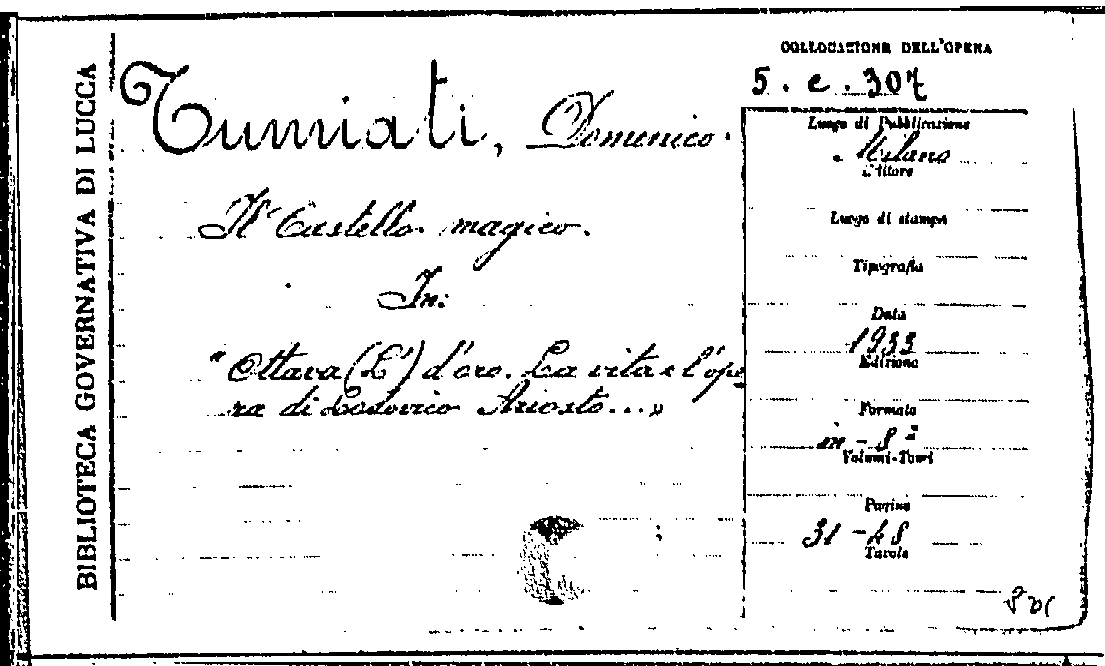 BIBLIOTECA GOVERNATIVA DI LUCCA
Tumiati, Domenico.
Il Castello magico.
In:
"Ottava (L') d'oro. La vita e l'ope
ra di Lodovico Ariosto...»
COLLOCAZIONE DELL'OPERA
5. e. 307
Luogo di Pubblicazione
Milano
Editore
Luogo di stampa
Tipografia
Data
1933
Edizione
Formato
in-8°
Volumi-Tomi
Pagine
31-48
Tavole